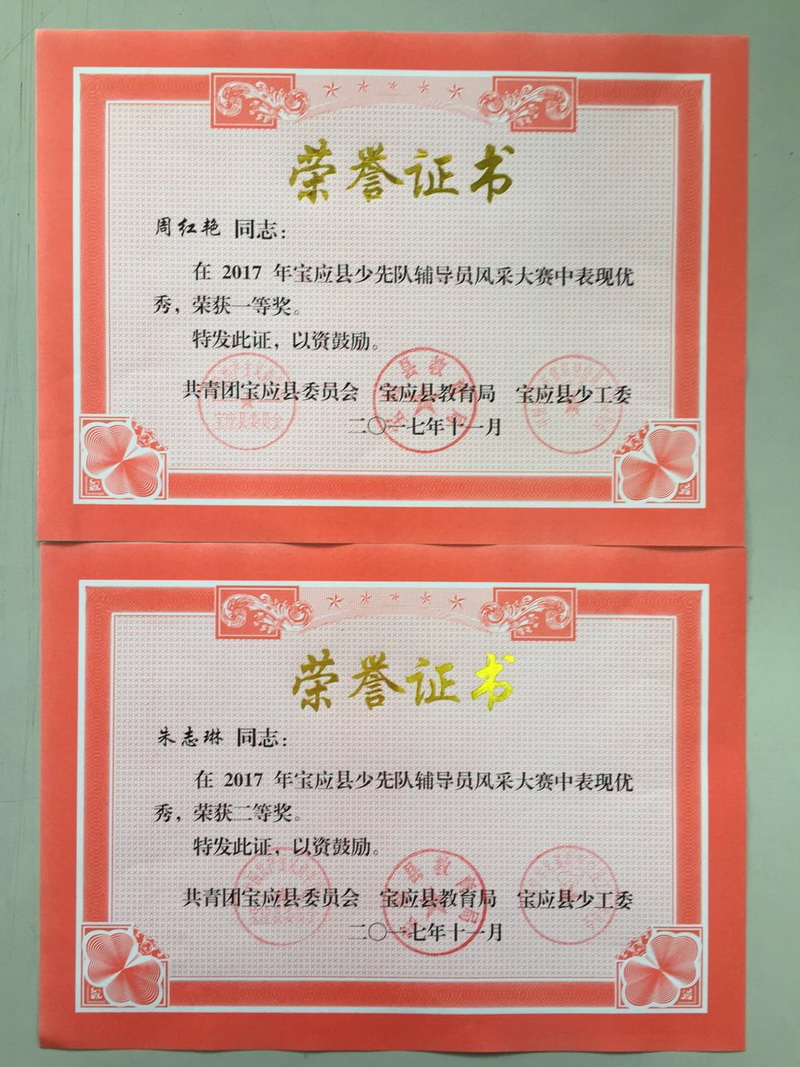 荣誉证书
周红艳 同志：
在 2017 年宝应县少先队辅导员风采大赛中表现优
秀，荣获一等奖。
特发此证，以资鼓励。
共青团宝应县委员会 宝应县教育局 宝应县少工委
二〇一七年十一月
荣誉证书
朱志琳 同志：
在 2017 年宝应县少先队辅导员风采大赛中表现优
秀，荣获二等奖。
特发此证，以资鼓励。
共青团宝应县委员会 宝应县教育局 宝应县少工委
二〇一七年十一月